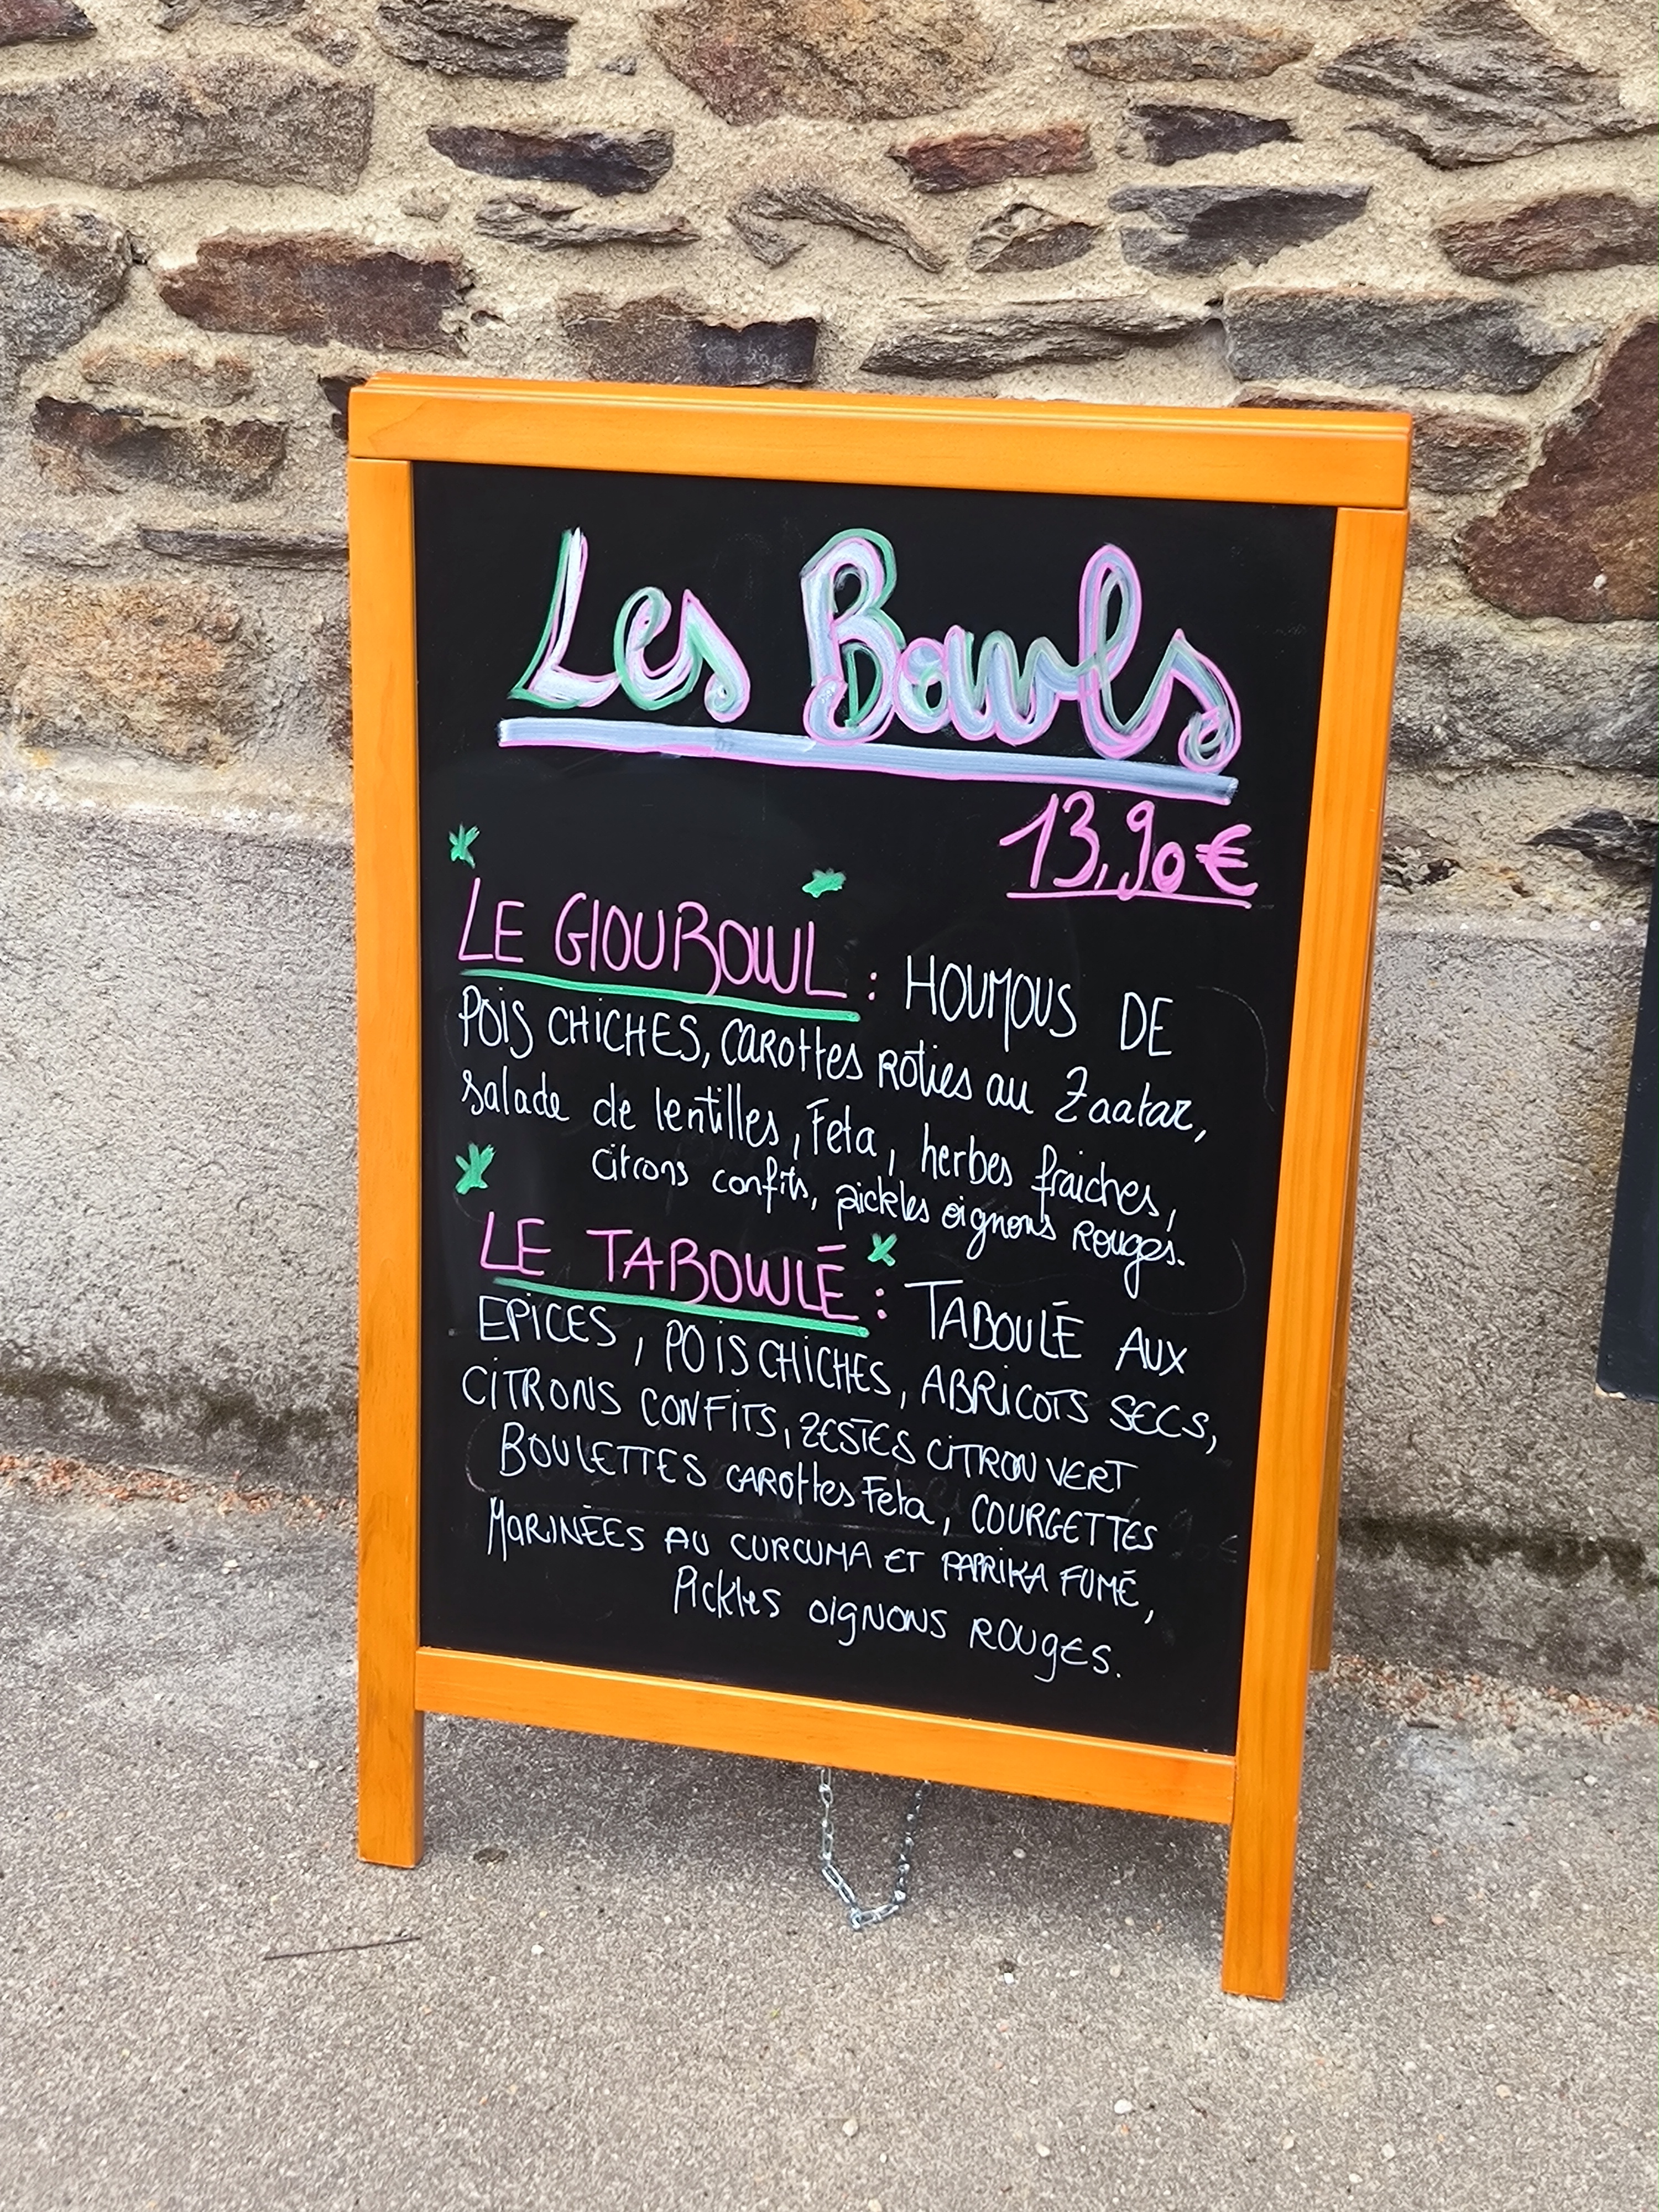 Les Bowls
13,90€
LE GIOUBOWL : HOUMOUS DE
POIS CHICHES, CAROttes Rôties au Zaatar,
salade de lentilles, Feta, herbes fraiches,
citrons confits, pickles oignons Rouges.
LE TABOWLÉ : TABOULÉ AUX
EPICES, POIS CHICHES, ABRICOTS SECS,
CITRONS CONFITS, ZESTES CITRON VERT
BOULETTES CAROttes Feta, COURGETTES
MARINÉES AU CURCUMA ET PAPRIKA FUMÉ,
Pickles oignons ROUGES.